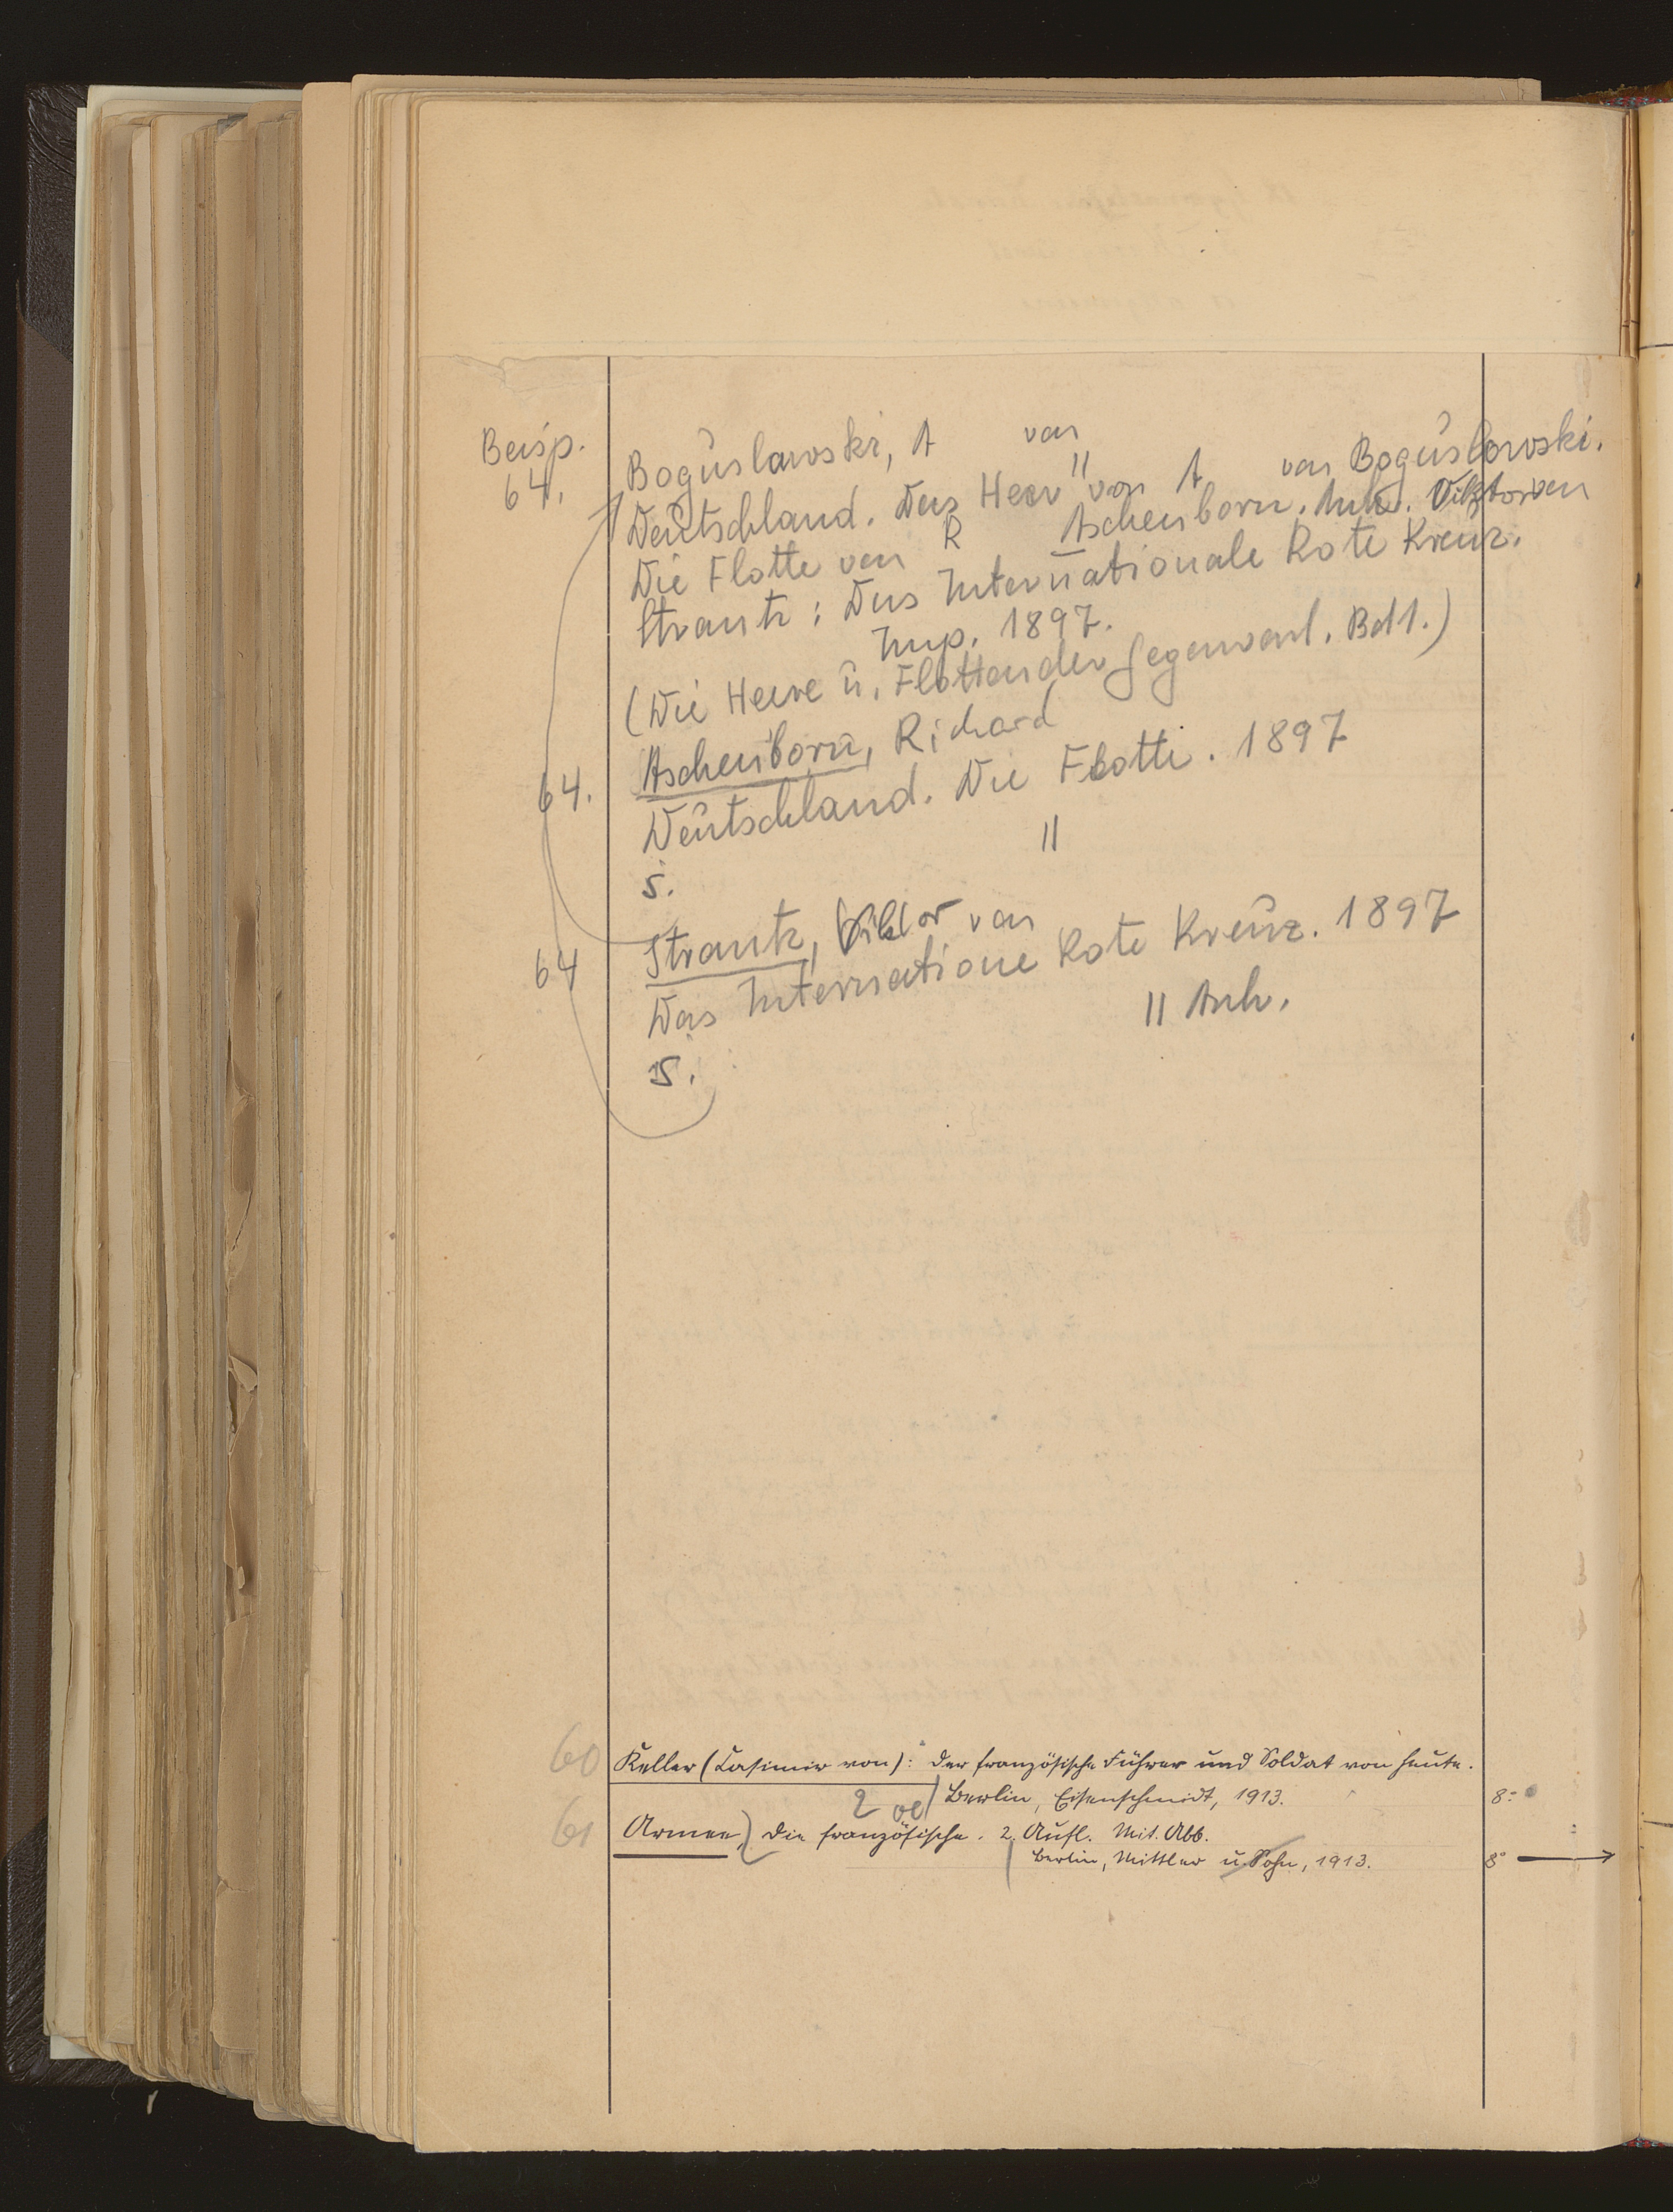 Beisp.
64.
Boguslawski, A von
Deutschland. Das Heer von A von Boguslowski.
Die Flotte von R Aschenborn. Anh. Viktor von
Strantz: Das Internationale Rote Kreuz.
Imp. 1897.
(Die Heere u. Flotten der Gegenwart. Bd 1.)
64. Aschenborn, Richard
Deutschland. Die Flotte. 1897
s. //
64 Strantz, Viktor von
Das Internatione Rote Kreuz. 1897
// Anh.
s.
60 Keller (Casimir von): Der französische Führer und Soldat von heute.
Berlin, Eisenschmidt, 1913. 8°
61 Armee, Die französische. 2. Aufl. Mit. Abb.
Berlin, Mittler u. Sohn, 1913. 8°